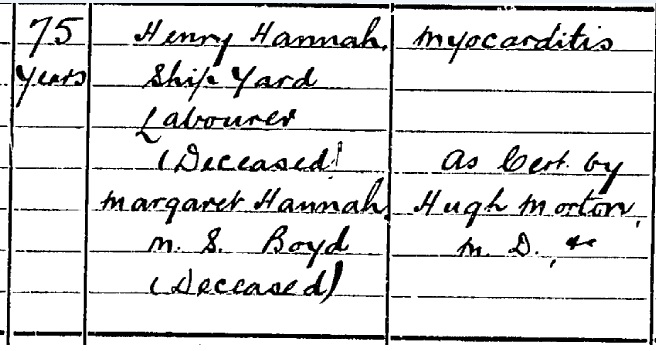 75
years
Henry Hannah,
Ship Yard
Labourer
(Deceased)
Margaret Hannah,
M. S. Boyd
(Deceased)
Myocarditis
As Cert. by
Hugh Morton,
M. D., &c